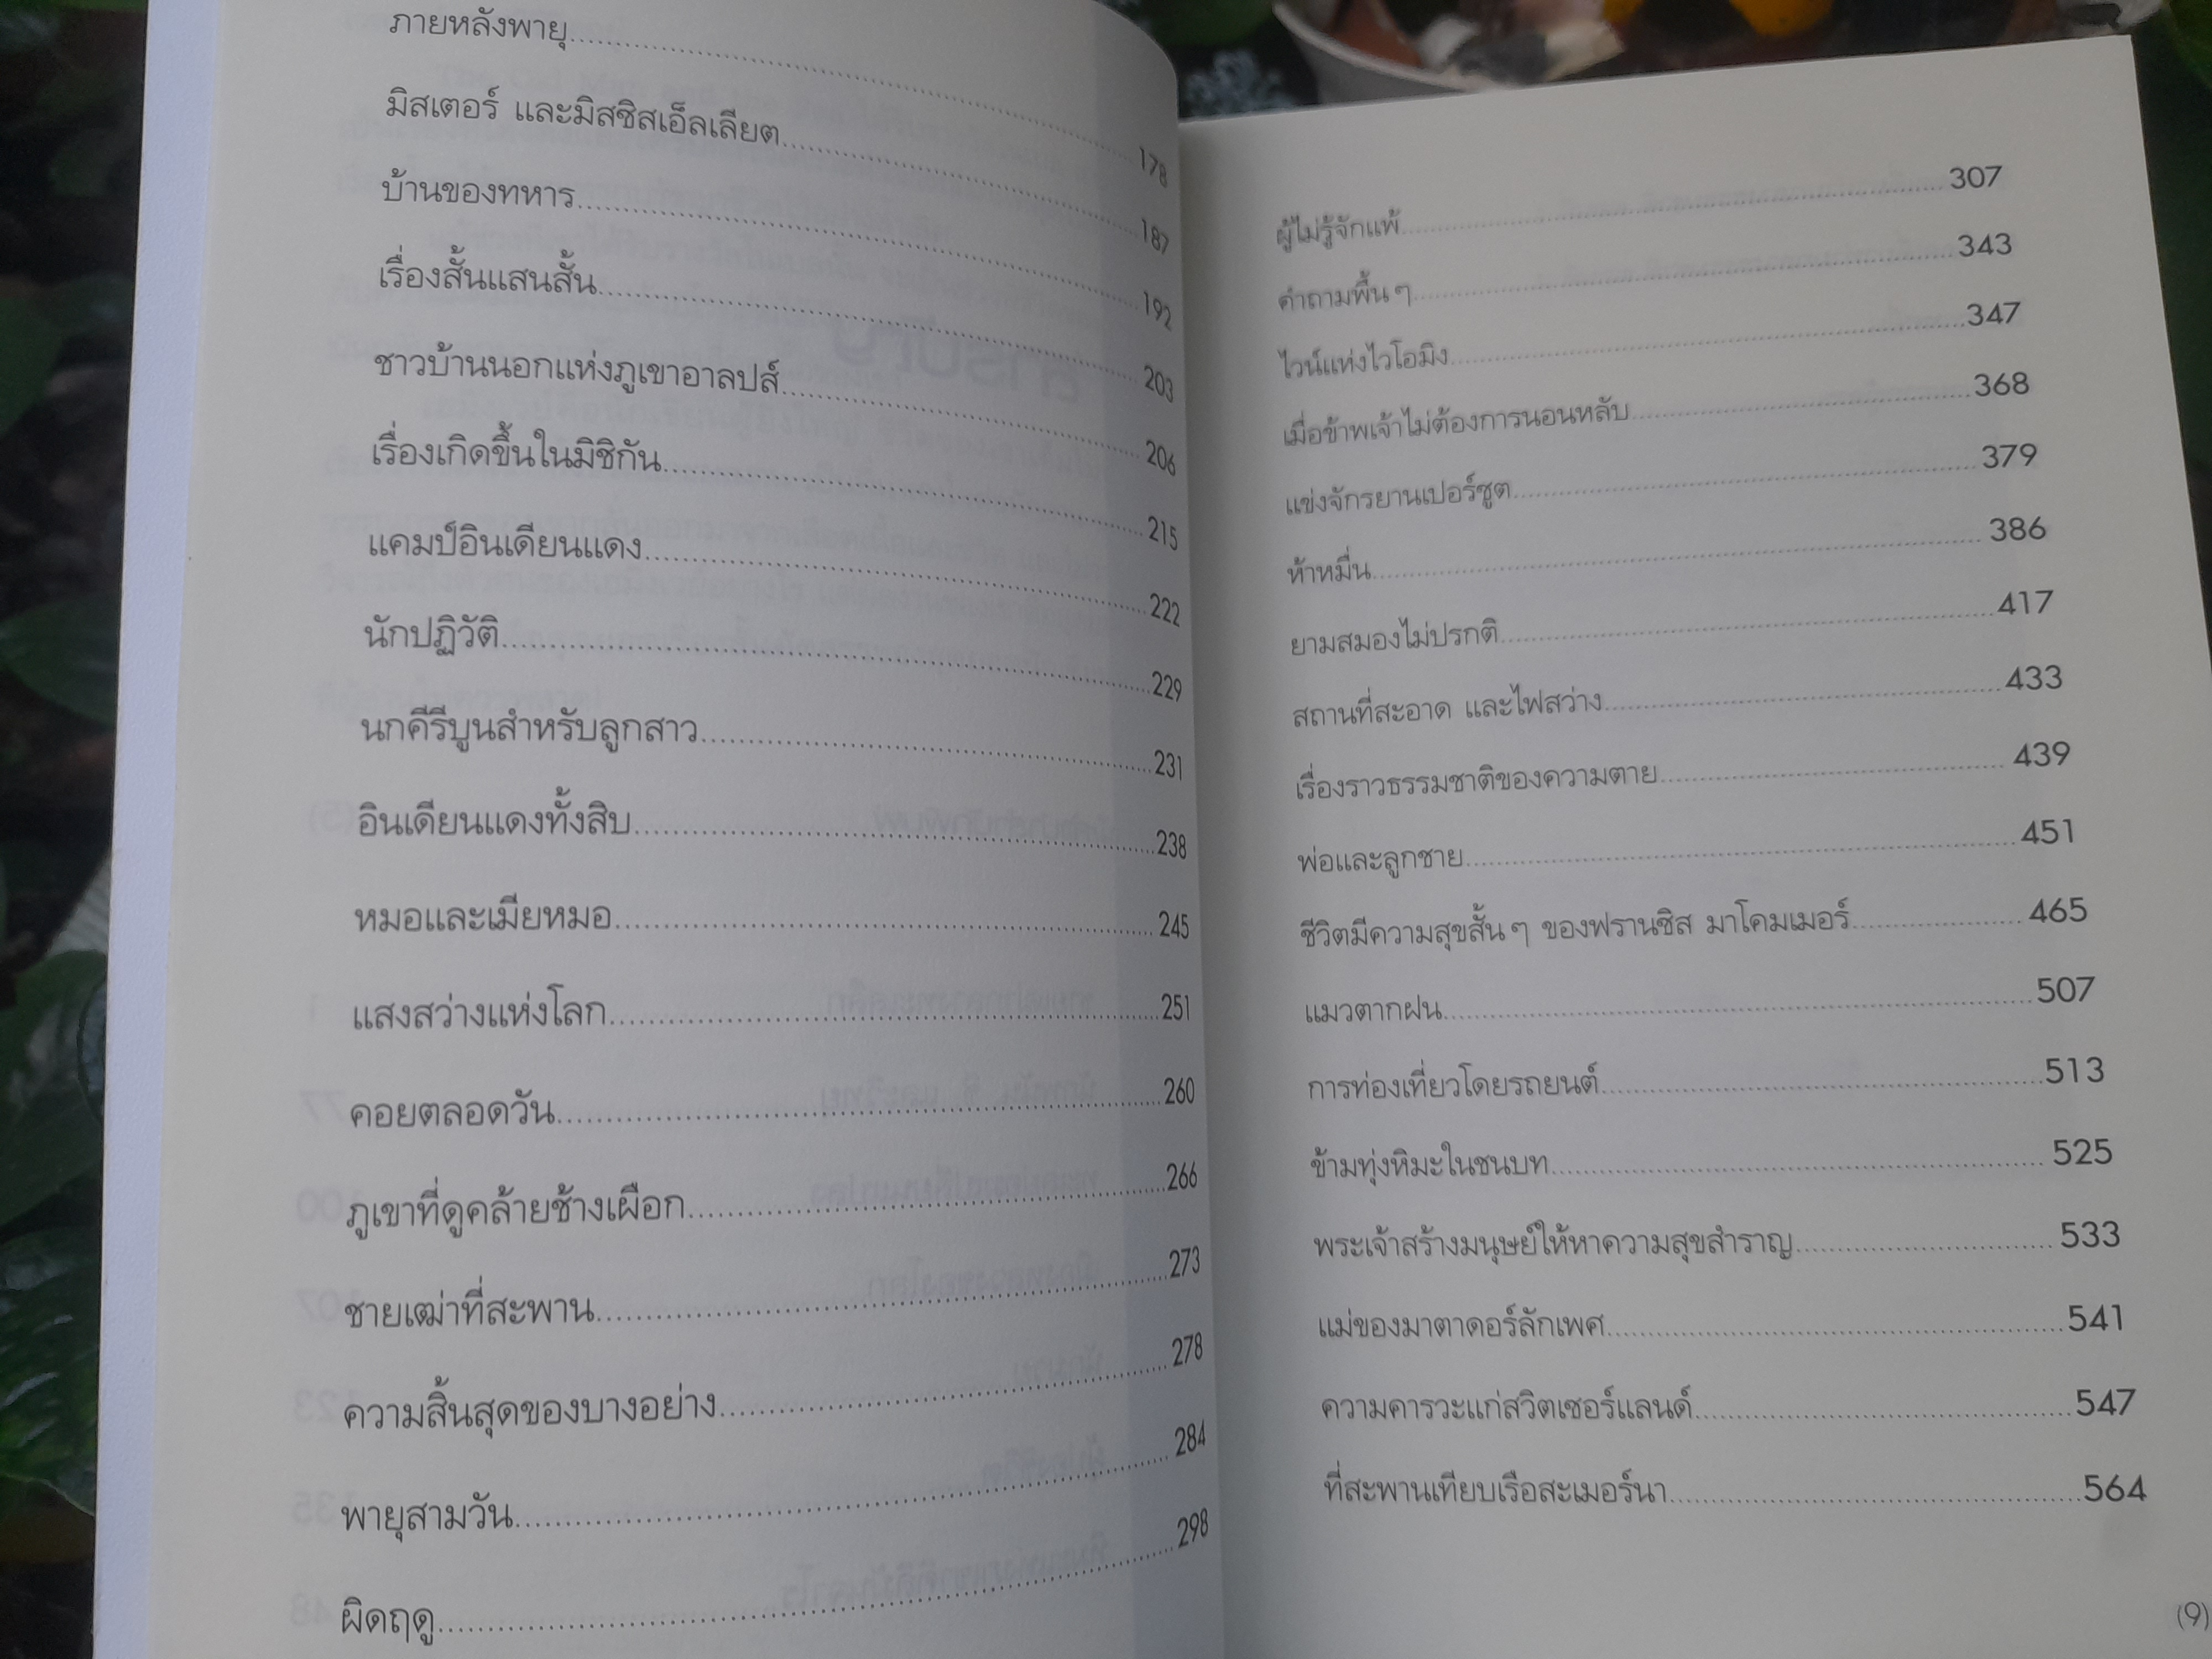 ภายหลังพายุ 178
มิสเตอร์ และมิสซิสเอ็ลเลียต 187
บ้านของทหาร 192
เรื่องสั้นแสนสั้น 203
ชาวบ้านนอกแห่งภูเขาอาลปส์ 206
เรื่องเกิดขึ้นในมิชิกัน 215
แคมป์อินเดียนแดง 222
นักปฏิวัติ 229
นกคีรีบูนสำหรับลูกสาว 231
อินเดียนแดงทั้งสิบ 238
หมอและเมียหมอ 245
แสงสว่างแห่งโลก 251
คอยตลอดวัน 260
ภูเขาที่ดูคล้ายช้างเผือก 266
ชายเฒ่าที่สะพาน 273
ความสิ้นสุดของบางอย่าง 278
พายุสามวัน 284
ผิดฤดู 298
ผู้ไม่รู้จักแพ้ 307
คำถามพื้นๆ 343
ไวน์แห่งไวโอมิง 347
เมื่อข้าพเจ้าไม่ต้องการนอนหลับ 368
แข่งจักรยานเปอร์ซูต 379
ห้าหมื่น 386
ยามสมองไม่ปรกติ 417
สถานที่สะอาด และไฟสว่าง 433
เรื่องราวธรรมชาติของความตาย 439
พ่อและลูกชาย 451
ชีวิตมีความสุขสั้นๆ ของฟรานซิส มาโคมเมอร์ 465
แมวตากฝน 507
การท่องเที่ยวโดยรถยนต์ 513
ข้ามทุ่งหิมะในชนบท 525
พระเจ้าสร้างมนุษย์ให้หาความสุขสำราญ 533
แม่ของมาตาดอร์ลักเพศ 541
ความคารวะแก่สวิตเซอร์แลนด์ 547
ที่สะพานเทียบเรือสะเมอร์นา 564
(9)